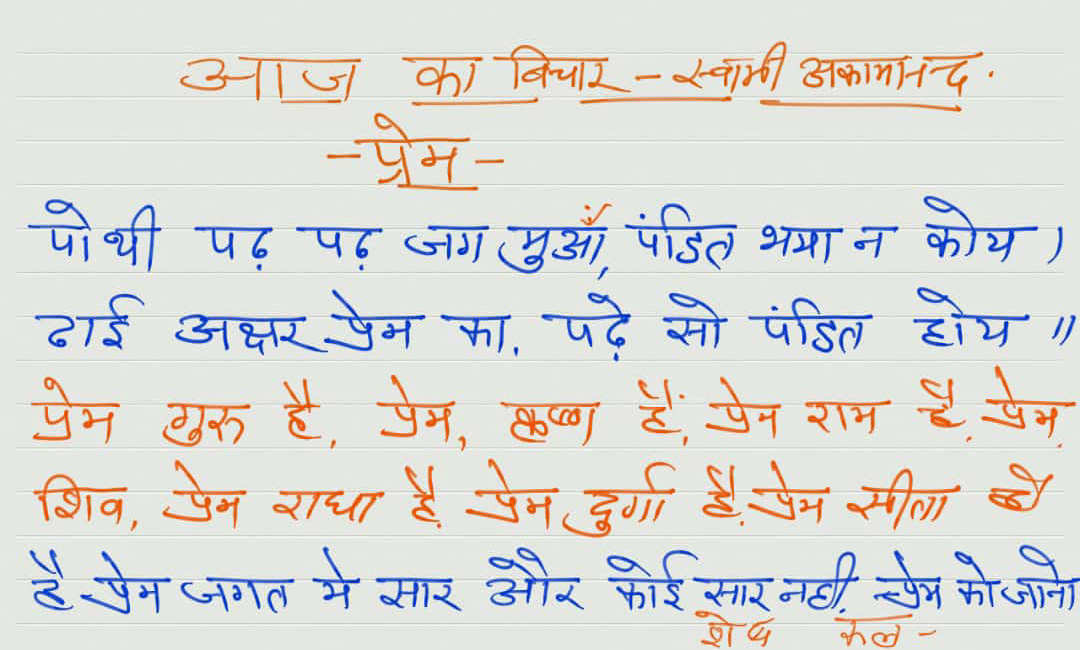 आज का विचार - स्वामी अकामानन्द.
- प्रेम -
पोथी पढ़ पढ़ जग मुआँ, पंडित भया न कोय ।
ढाई अक्षर प्रेम का, पढ़े सो पंडित होय ॥
प्रेम गुरु है, प्रेम, कृष्ण है, प्रेम राम है, प्रेम,
शिव, प्रेम राधा है, प्रेम दुर्गा है, प्रेम सीता
है प्रेम जगत मे सार और कोई सार नही, प्रेम को जानो
शेष कल -